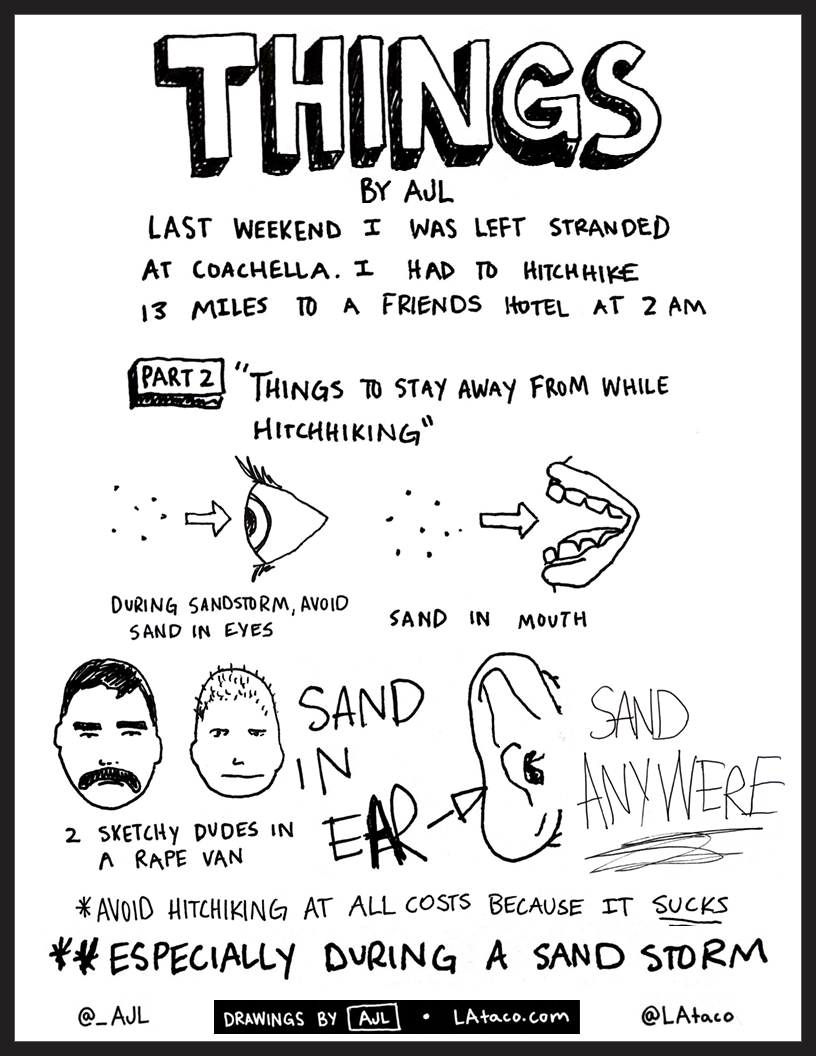 THINGS
BY AJL
LAST WEEKEND I WAS LEFT STRANDED
AT COACHELLA. I HAD TO HITCHHIKE
13 MILES TO A FRIENDS HOTEL AT 2 AM
PART 2 "THINGS TO STAY AWAY FROM WHILE
HITCHHIKING"
DURING SANDSTORM, AVOID
SAND IN EYES
SAND IN MOUTH
2 SKETCHY DUDES IN
A RAPE VAN
SAND
IN
EAR
SAND
ANYWERE
*AVOID HITCHIKING AT ALL COSTS BECAUSE IT SUCKS
**ESPECIALLY DURING A SAND STORM
@_AJL
DRAWINGS BY AJL • LAtaco.com
@LAtaco